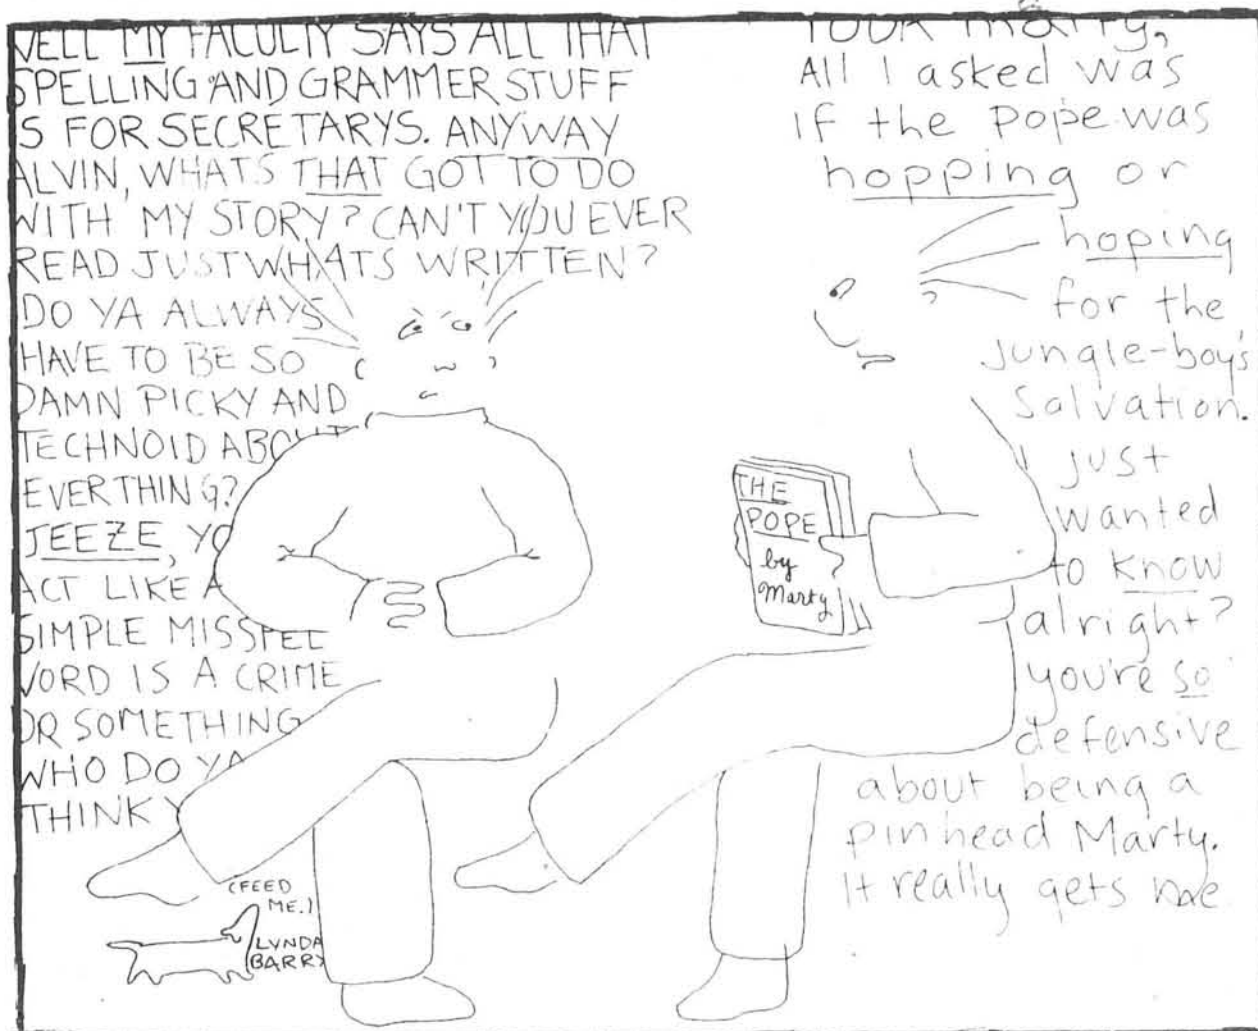 WELL MY FACULTY SAYS ALL THAT
SPELLING AND GRAMMER STUFF
IS FOR SECRETARYS. ANYWAY
ALVIN, WHATS THAT GOT TO DO
WITH MY STORY? CAN'T YOU EVER
READ JUST WHATS WRITTEN?
DO YA ALWAYS
HAVE TO BE SO
DAMN PICKY AND
TECHNOID ABOUT
EVERTHING?
JEEZE, YO
ACT LIKE A
SIMPLE MISSPEL
WORD IS A CRIME
OR SOMETHING
WHO DO YA
THINK Y
look marty,
All I asked was
if the pope was
hopping or
hoping
for the
jungle-boy's
Salvation.
I just
wanted
to know
alright?
you're so
defensive
about being a
pinhead Marty.
It really gets
THE
POPE
by
Marty
(FEED
ME.)
LYNDA
BARRY